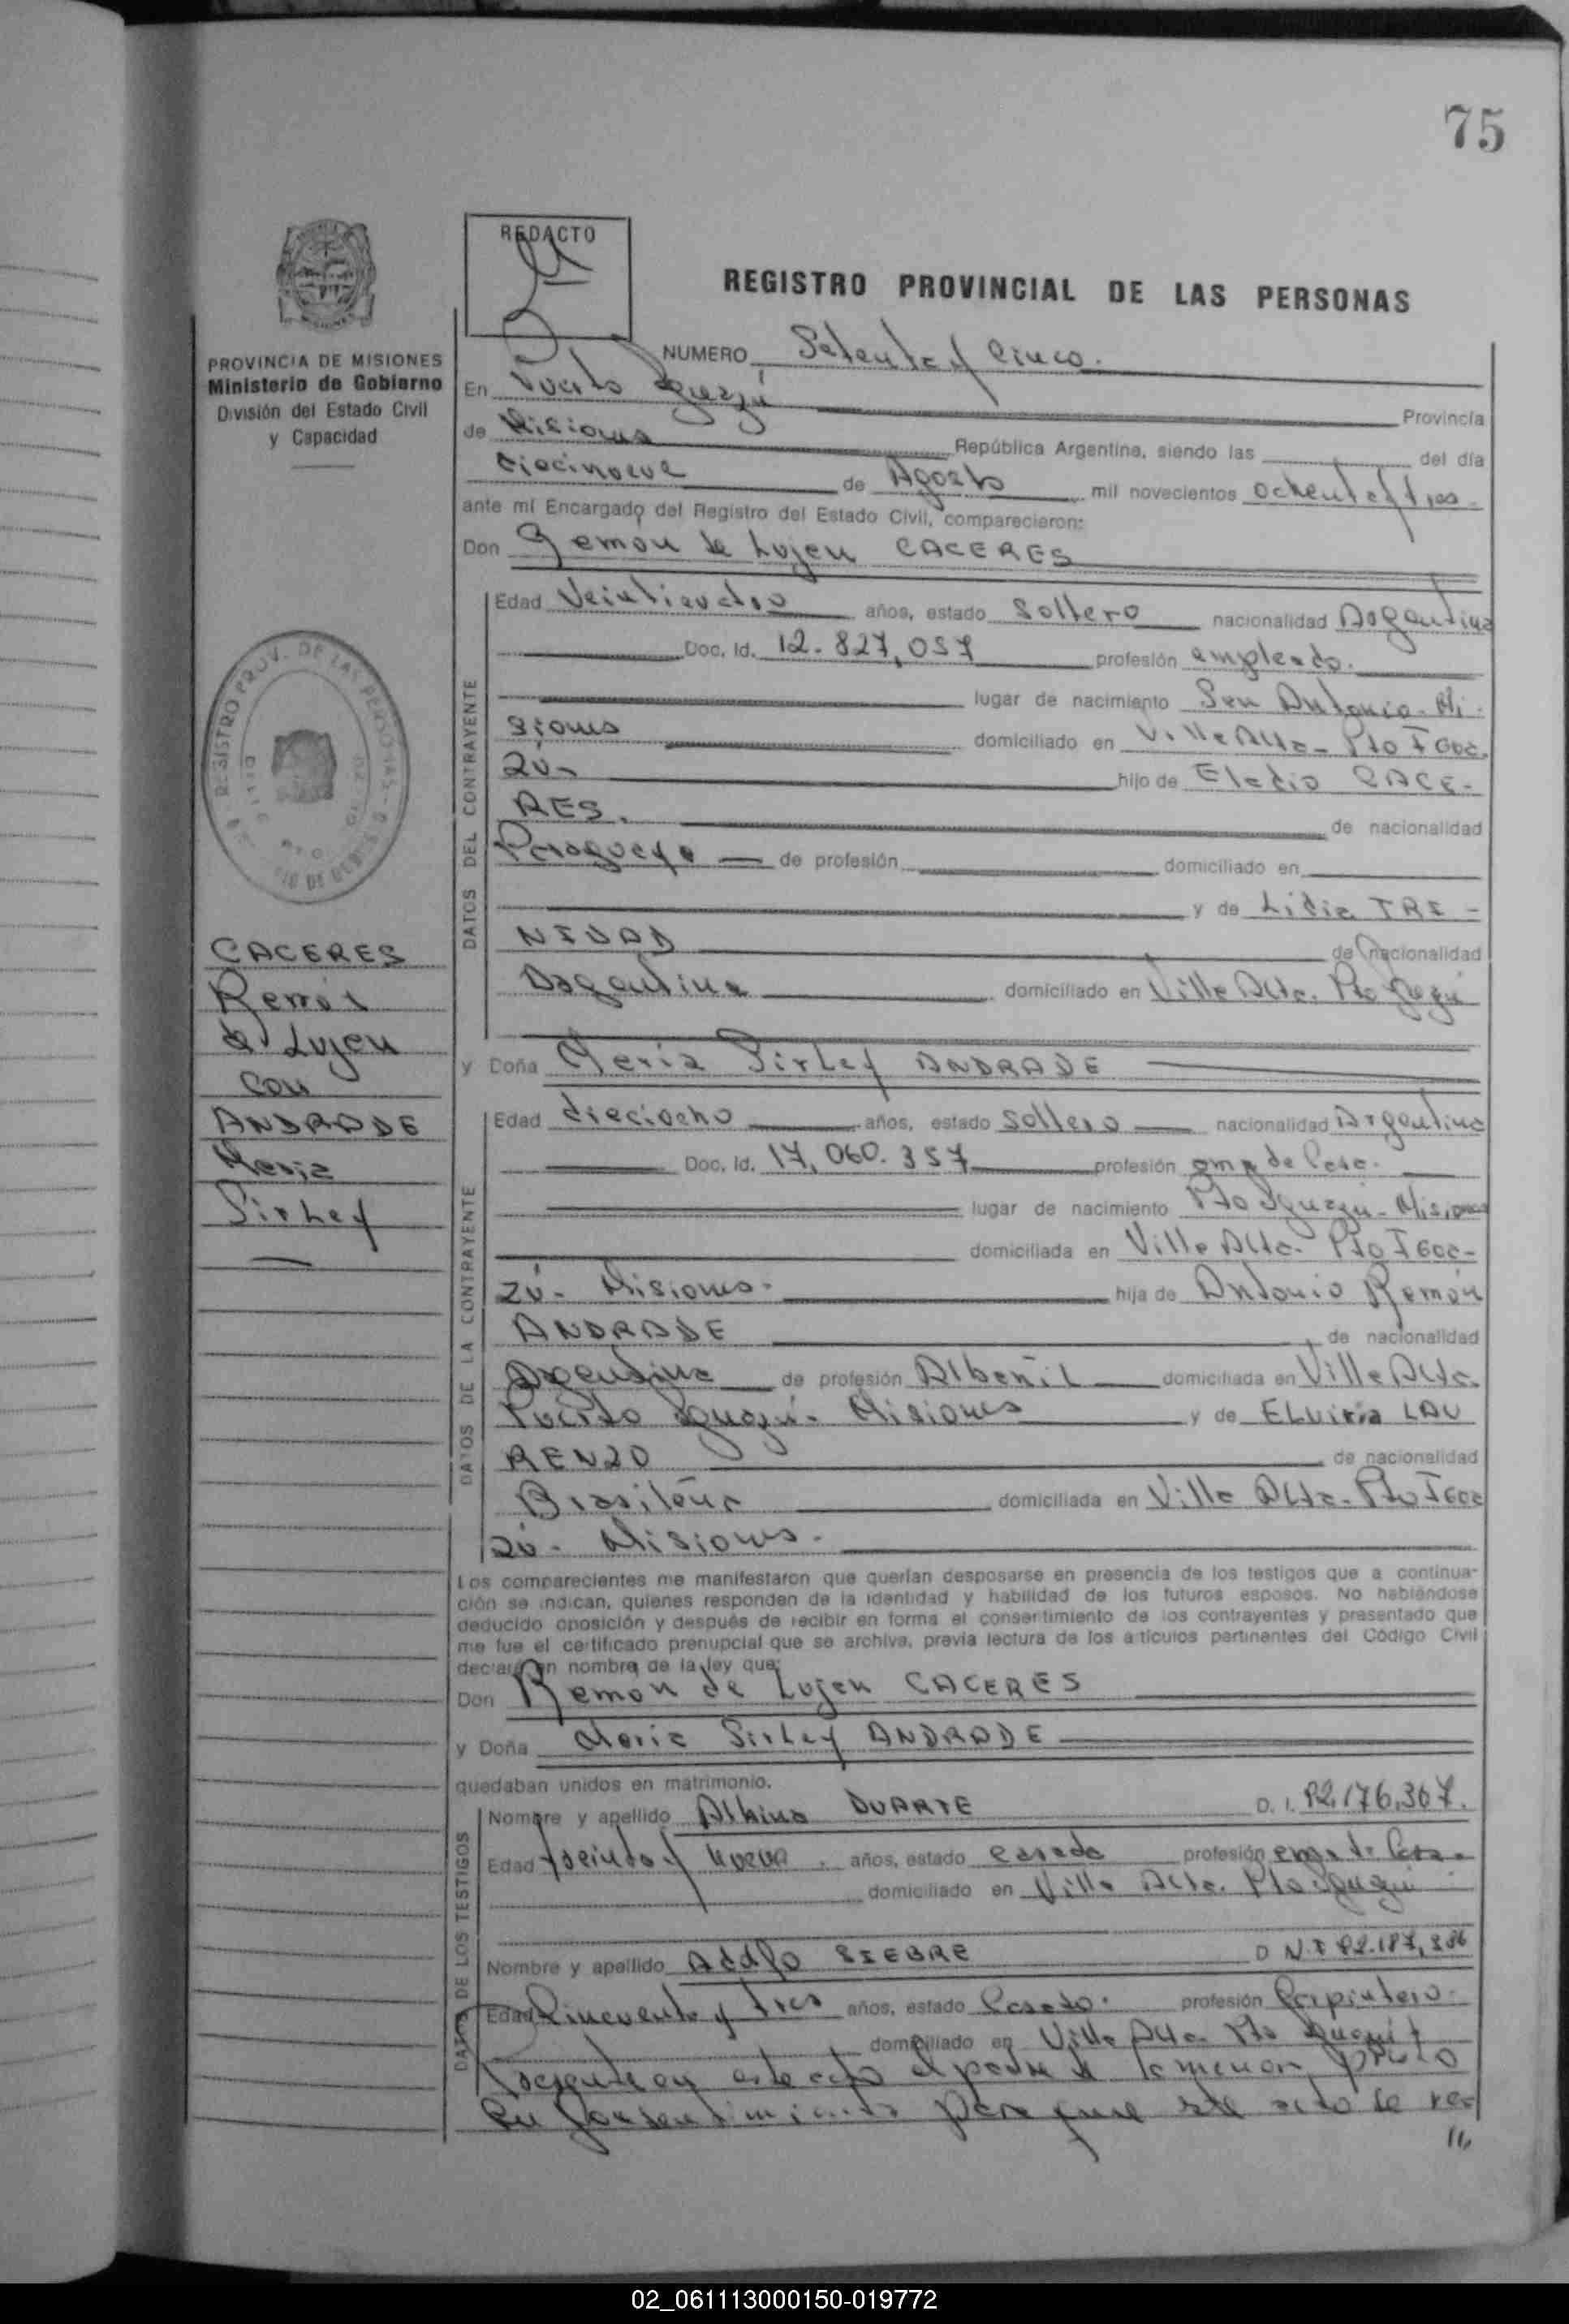 75
REDACTO
REGISTRO PROVINCIAL DE LAS PERSONAS
PROVINCIA DE MISIONES
Ministerio de Gobierno
División del Estado Civil
y Capacidad
NUMERO Setenta y Cinco.
En Puerto Iguazú Provincia
de Misiones República Argentina, siendo las del día
diecinueve de Agosto mil novecientos ochenta y tres
ante mí Encargado del Registro del Estado Civil, comparecieron:
Don Ramon de Lujan CACERES
DATOS DEL CONTRAYENTE
Edad Veinticuatro años, estado Soltero nacionalidad Argentina
Doc. Id. 12.827,057 profesión empleado.
lugar de nacimiento San Antonio - Mi-
siones domiciliado en Villa Alta - Pto IGUA
ZÚ- hijo de Eladio CACE-
RES. de nacionalidad
Paraguaya de profesión domiciliado en
y de Lidia TRI-
NIDAD de nacionalidad
Argentina domiciliado en Villa Alta. Pto Iguazú
CACERES
Ramón
de Lujan
con
ANDRADE
Maria
Sirley
y Doña Maria Sirley ANDRADE
DATOS DE LA CONTRAYENTE
Edad dieciocho años, estado Soltera nacionalidad Argentina
Doc. Id. 17,060.357 profesión ama de Casa.
lugar de nacimiento Pto Iguazú - Misiones
domiciliada en Villa Alta - Pto IGUA-
ZÚ - Misiones - hija de Antonio Ramón
ANDRADE de nacionalidad
Argentina de profesión Albañil domiciliada en Villa Alta
Puerto Iguazú - Misiones y de ELvira LAU
RENZO de nacionalidad
Brasileña domiciliada en Villa Alta - Pto IGUA
ZÚ - Misiones -
Los comparecientes me manifestaron que querían desposarse en presencia de los testigos que a continua-
ción se indican, quienes responden de la identidad y habilidad de los futuros esposos. No habiéndose
deducido oposición y después de recibir en forma el consentimiento de los contrayentes y presentado que
me fue el certificado prenupcial que se archiva, previa lectura de los artículos pertinentes del Código Civil
declaré en nombre de la ley que:
Don Ramon de Lujan CACERES
y Doña Maria Sirley ANDRADE
quedaban unidos en matrimonio.
DATOS DE LOS TESTIGOS
Nombre y apellido Albina DUARTE D. I. 176.367.
Edad treinta y nueve años, estado casada profesión ama de Casa.
domiciliado en Villa Alta. Pto Iguazú
Nombre y apellido Adolfo SIEBRE D N.I
Edad Cincuenta y tres años, estado Casado. profesión Carpintero.
domiciliado en Villa Alta. Pto Iguazú
presente en este acto el padre de la menor, presto
su Consentimiento para que este acto se rea
02_061113000150-019772